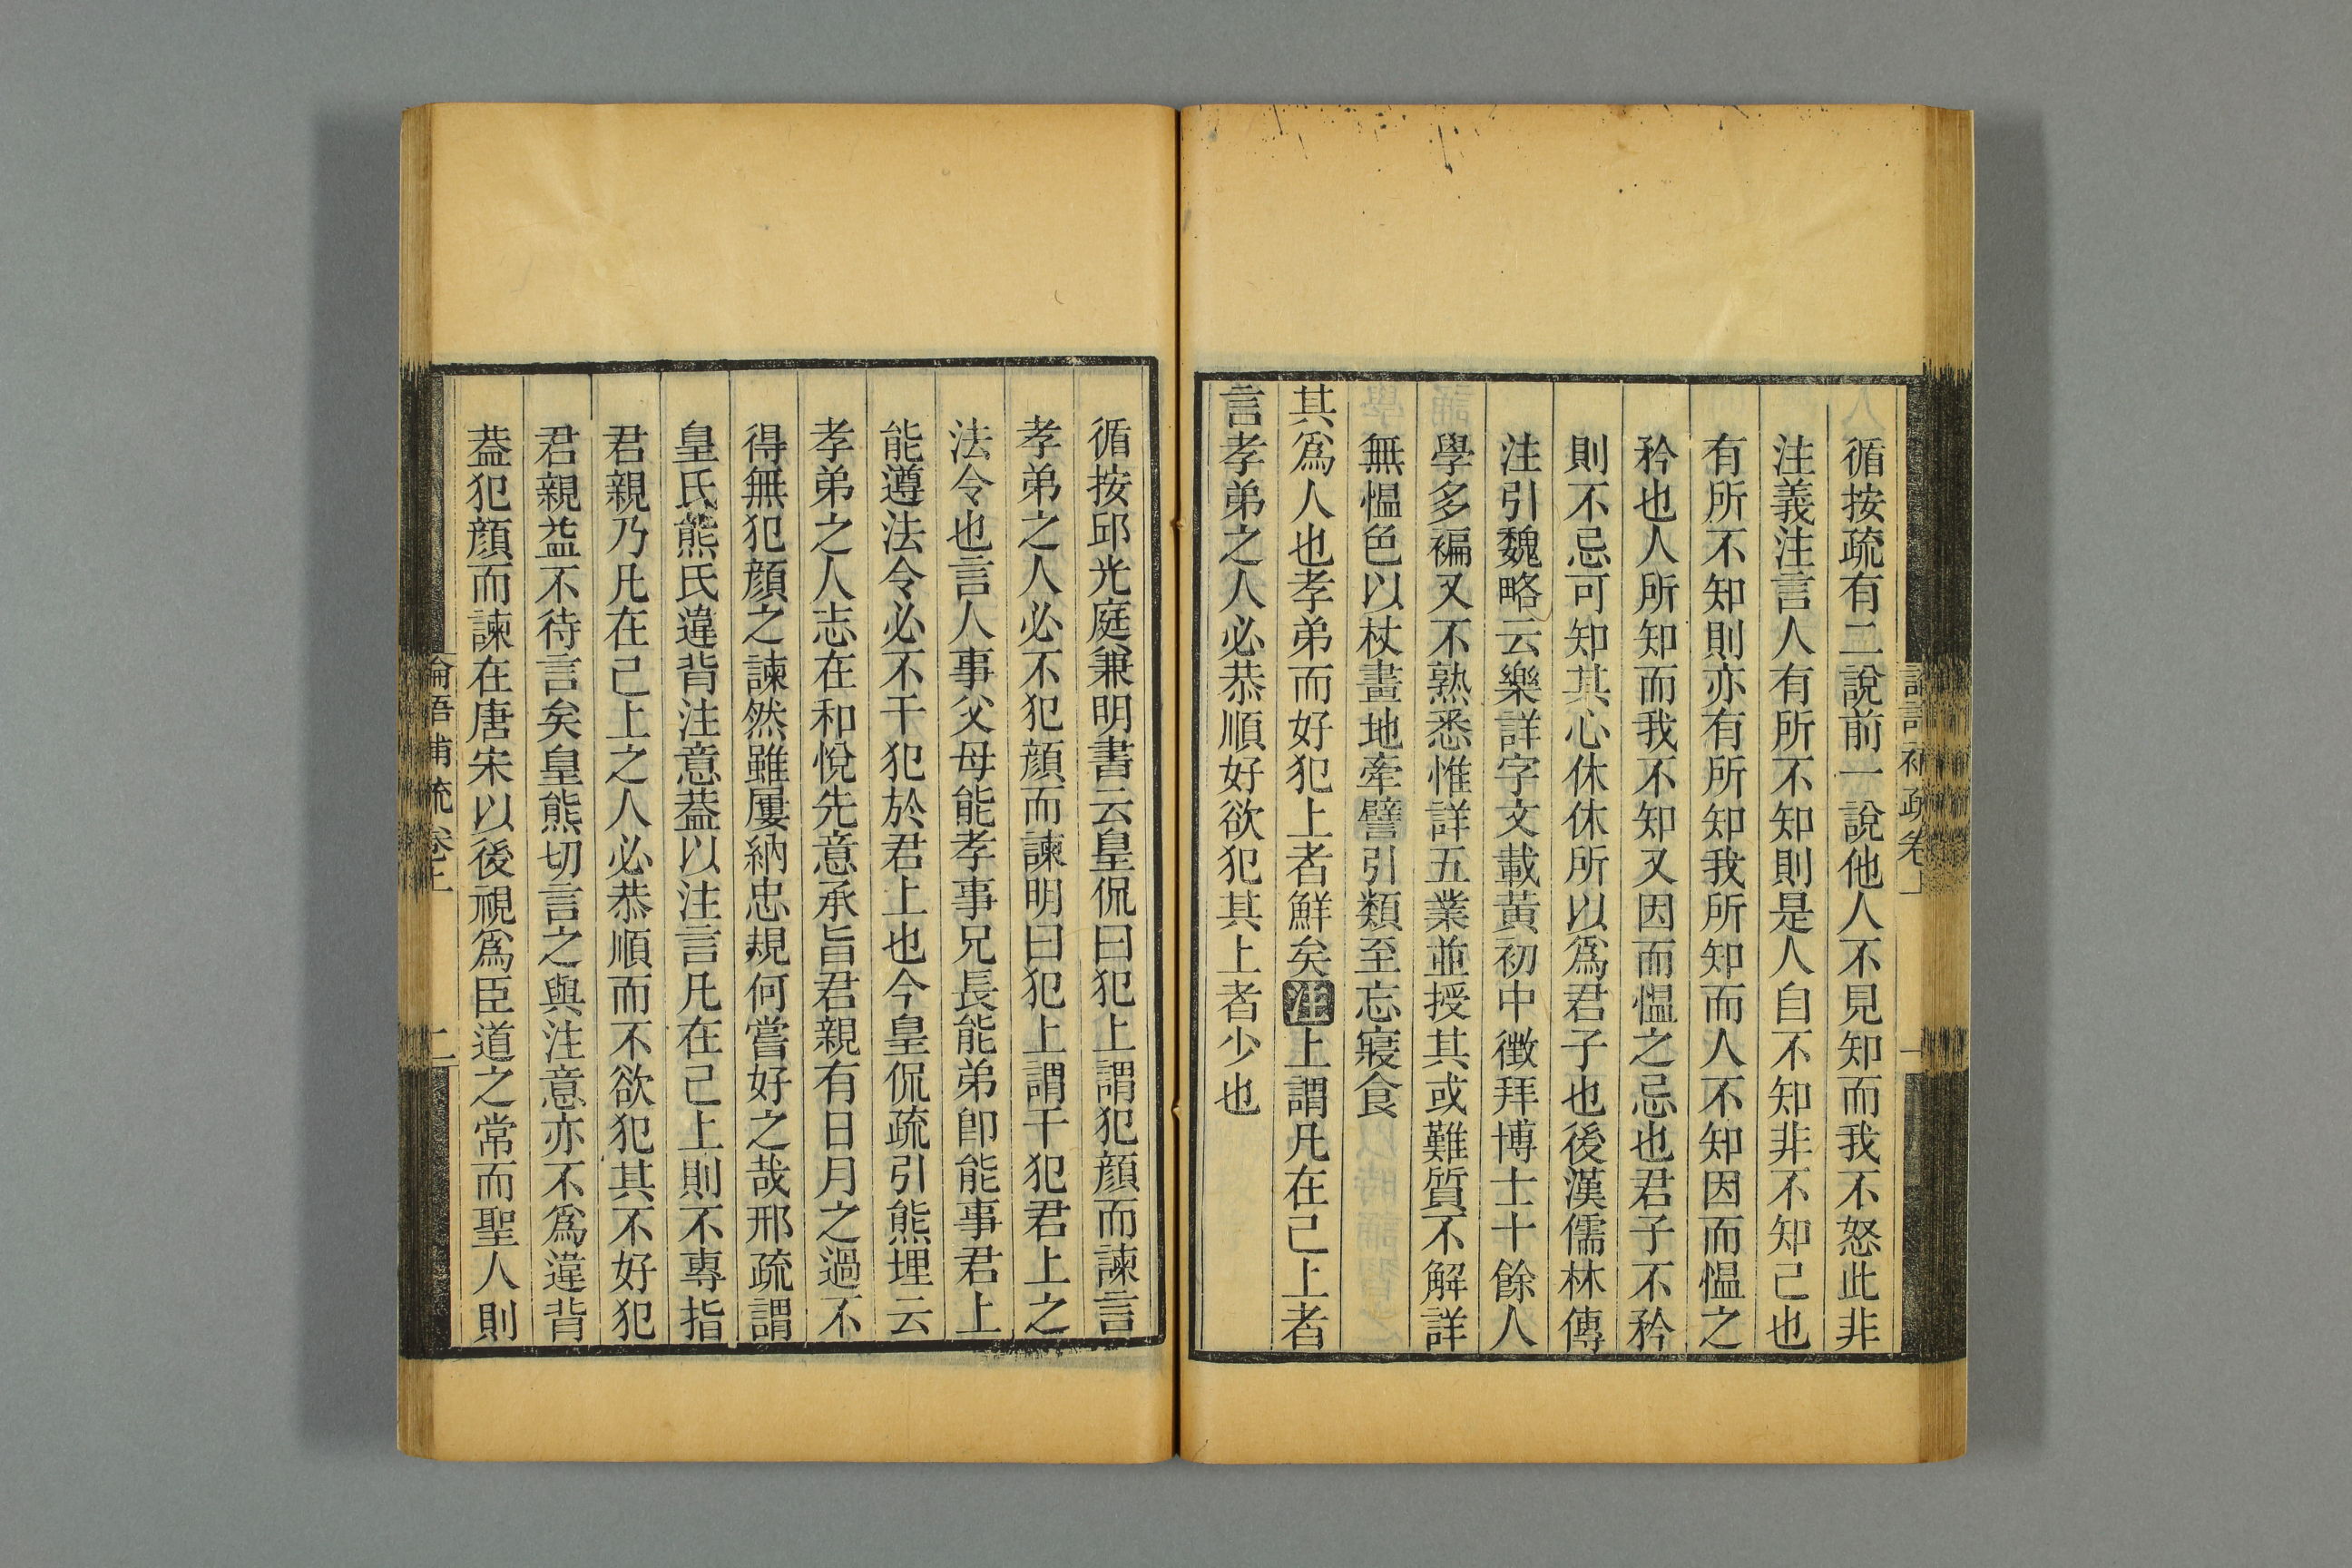 循按疏有二說前一說他人不見知而我不怒此非
注義注言人有所不知則是人自不知非不知己也
有所不知則亦有所知我所知而人不知因而慍之
矜也人所知而我不知又因而慍之忌也君子不矜
則不忌可知其心休休所以爲君子也後漢儒林傳
注引魏略云樂詳字文載黃初中徵拜博士十餘人
學多褊又不熟悉惟詳五業並授其或難質不解詳
無慍色以杖畫地牽譬引類至忘寢食
其爲人也孝弟而好犯上者鮮矣注上謂凡在己上者
言孝弟之人必恭順好欲犯其上者少也
循按邱光庭兼明書云皇侃曰犯上謂犯顏而諫言
孝弟之人必不犯顏而諫明曰犯上謂干犯君上之
法令也言人事父母能孝事兄長能弟卽能事君上
能遵法令必不干犯於君上也今皇侃疏引熊埋云
孝弟之人志在和悅先意承旨君親有日月之過不
得無犯顏之諫然雖屢納忠規何嘗好之哉邢疏謂
皇氏熊氏違背注意葢以注言凡在己上則不專指
君親乃凡在己上之人必恭順而不欲犯其不好犯
君親益不待言矣皇熊切言之與注意亦不爲違背
葢犯顏而諫在唐宋以後視爲臣道之常而聖人則
論語補疏卷上
二